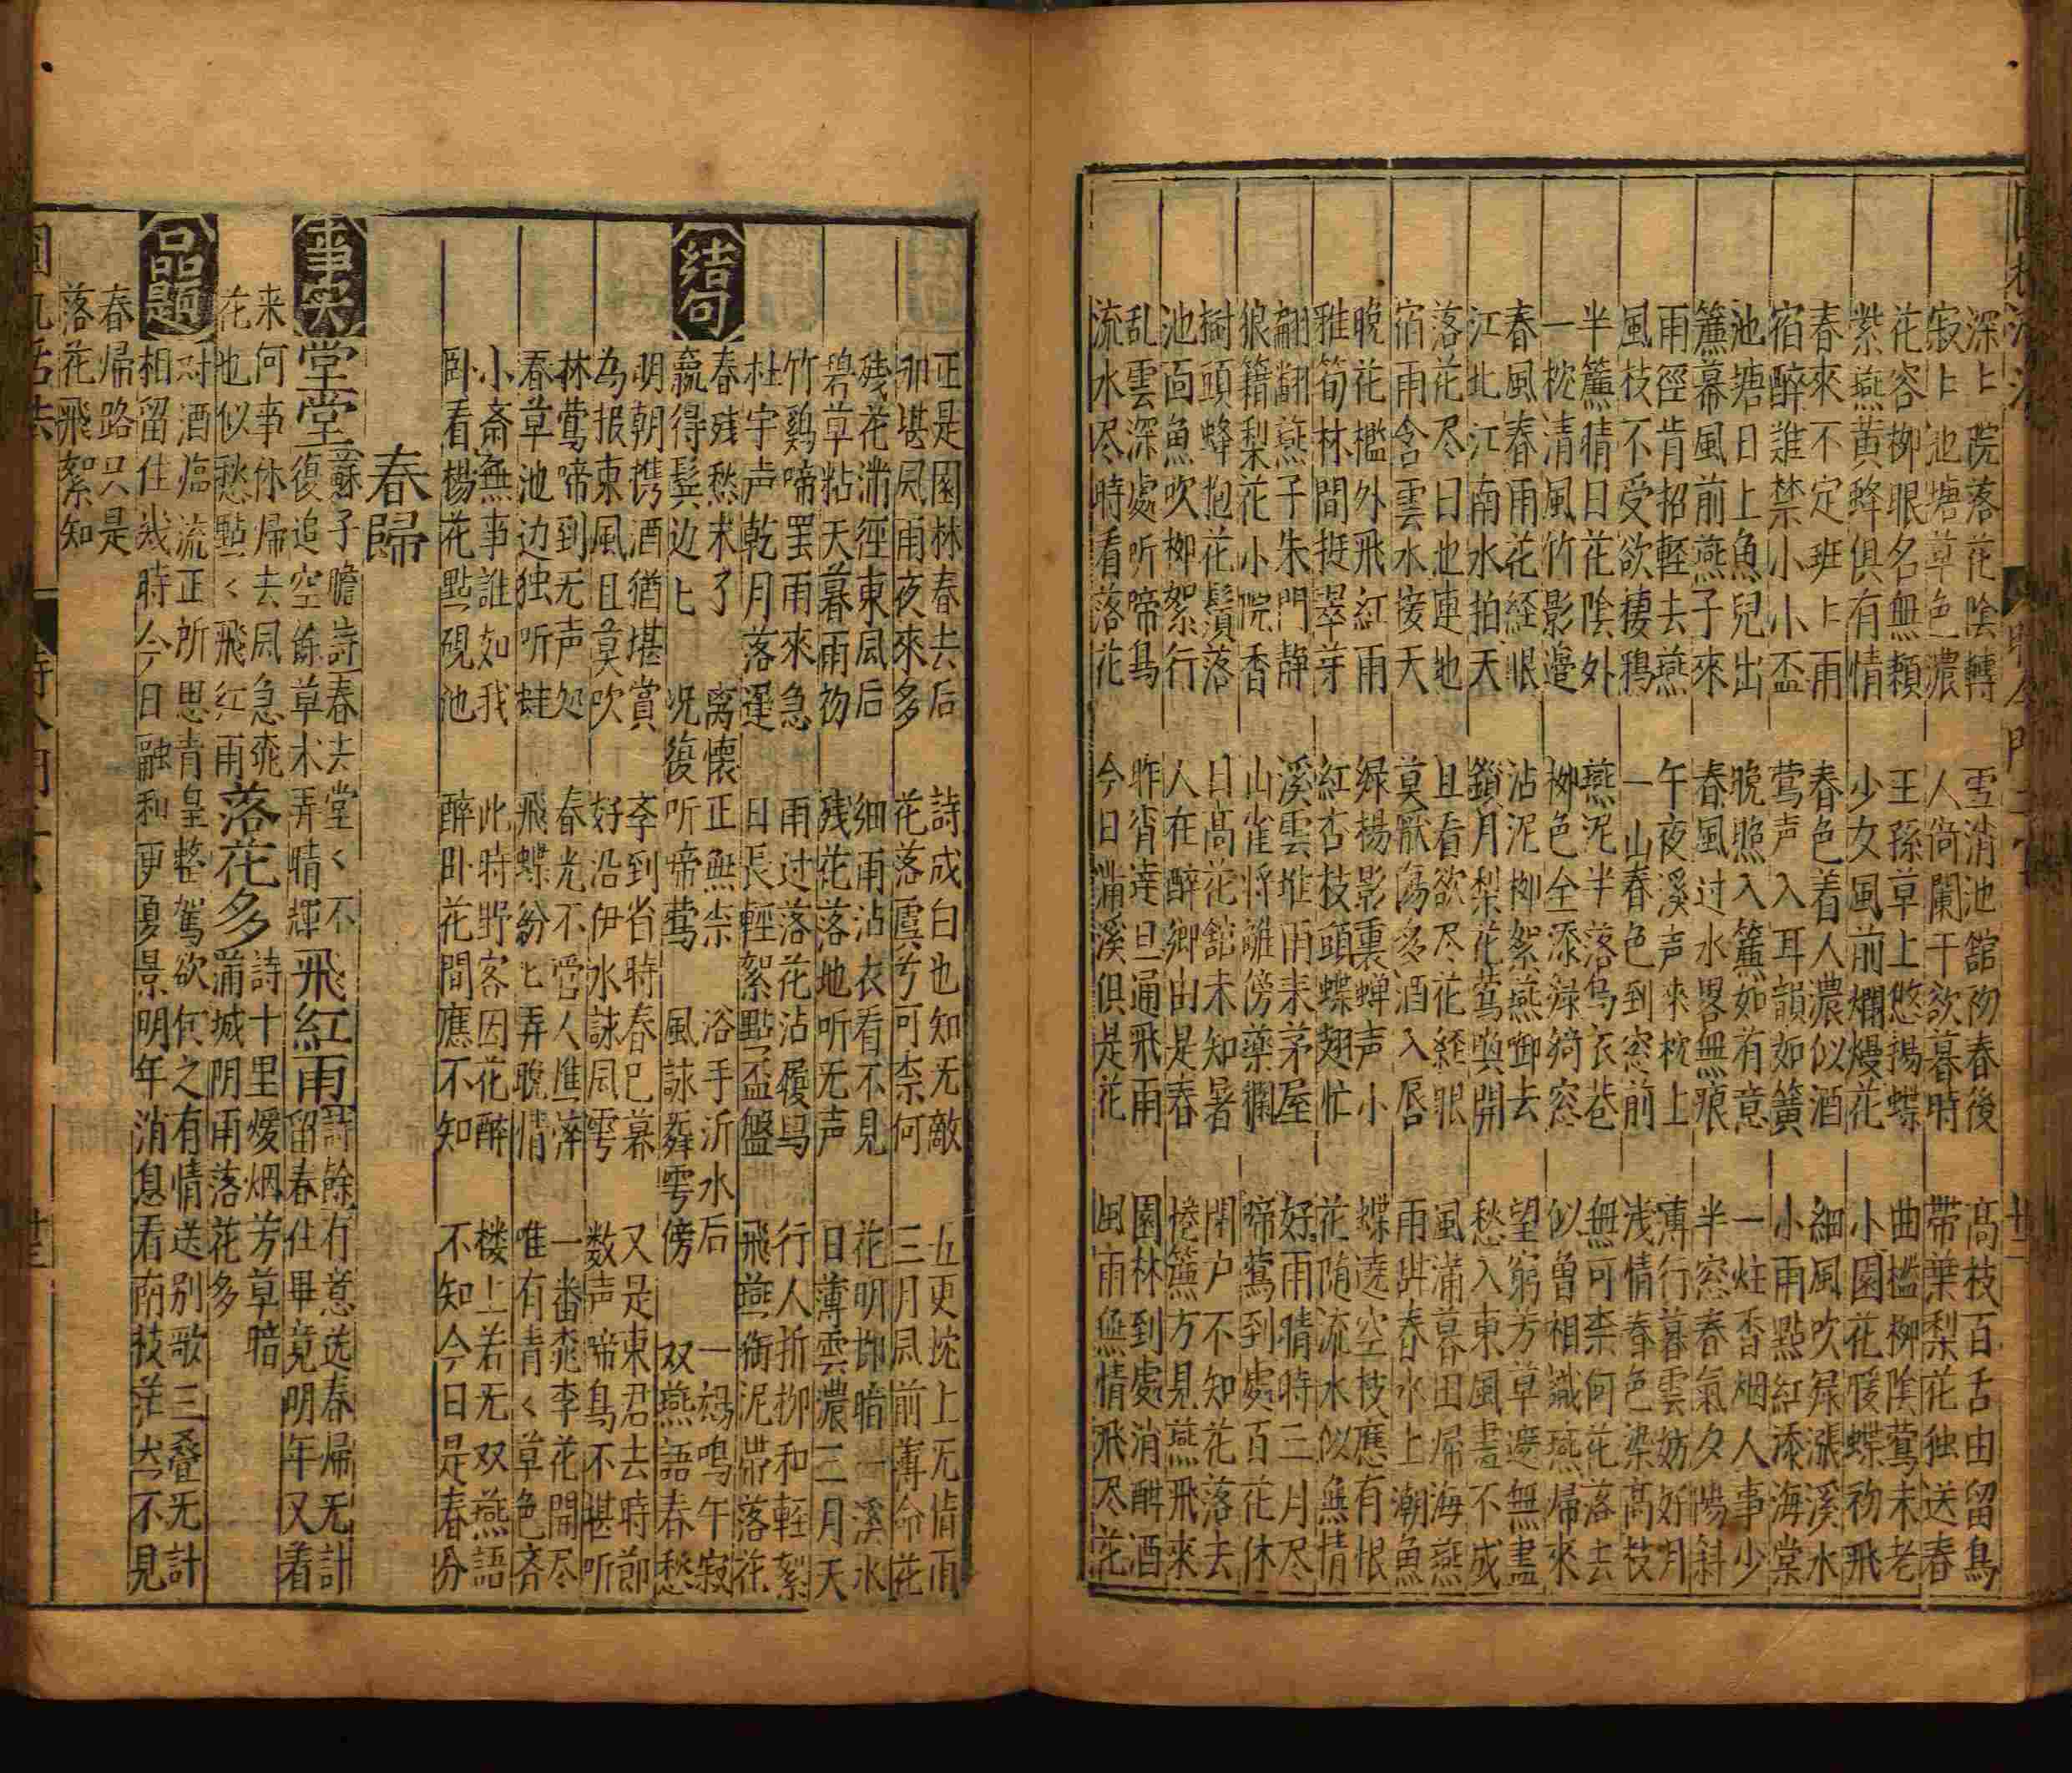 深〻院落花陰轉
寂〻池塘草色濃
雪消池舘初春後
人倚闌干欲暮時
高枝百舌由留鳥
帶葉梨花独送春
花容柳眼名無頼
紫燕黄蜂俱有情
王孫草上悠揚蝶
少女風前爛熳花
曲檻柳陰鶯未老
小園花暖蝶初飛
春來不定班〻雨
宿醉難禁小小盃
春色着人濃似酒
鶯声入耳韻如簧
細風吹緑漲溪水
小雨點紅添海棠
池塘日上魚兒出
簾幕風前燕子來
晚照入簾如有意
春風过水畧無痕
一炷香烟人事少
半窓春氣夕陽斜
雨徑肯招輕去燕
風枝不受欲棲鴉
午夜溪声來枕上
一山春色到窓前
薄行暮雲妨好月
浅情春色染高枝
半簾晴日花陰外
一枕清風竹影邉
燕泥半落烏衣巷
柳色全添緑綺窓
無可柰何花落去
似曾相識燕帰來
春風春雨花経眼
江北江南水拍天
沾泥柳絮燕啣去
鎖月梨花鶯與開
望窮芳草邉無盡
愁入東風畫不成
落花尽日也連地
宿雨含雲水接天
且看欲尽花経眼
莫厭傷多酒入唇
風滿暮田帰海燕
雨春水上潮魚
晚花檻外飛紅雨
雅筍林間挺翠芽
緑楊影裏蝉声小
紅杏枝頭蝶翅忙
蝶遶空枝應有恨
花随流水似無情
翩翩燕子朱門静
狼籍梨花小院香
溪雲堆雨耒茅屋
山雀将雛傍藥欄
好雨晴時三月尽
啼鶯到處百花休
樹頭蜂抱花鬚落
池面魚吹柳絮行
日高花舘未知暑
人在醉郷由是春
閉户不知花落去
捲簾方見燕飛來
乱雲深處听啼鳥
流水尽時看落花
昨宵達旦通飛雨
今日滿溪俱是花
園林到處消酣酒
風雨無情飛尽花
正是園林春去后
那堪风雨夜來多
詩成白也知无敵
花落虞兮可柰何
五更枕上无情雨
三月风前薄命花
残花滿徑東風后
碧草粘天暮雨初
細雨沾衣看不見
残花落地听无声
花明柳暗一溪水
日薄雲濃三月天
竹鷄啼罢雨來急
杜宇声乾月落遲
雨过落花沾履舄
日長輕絮點盃盤
行人折柳和輕絮
飛燕銜泥帶落花
結句
春残愁未了
贏得鬂边〻
离懷正無柰
况復听啼鶯
浴手沂水后
風詠舞雩傍
一鳩鳴午寂
双燕語春愁
明朝携酒猶堪賞
為报東風且莫吹
李到省時春已暮
好沿伊水詠风雩
又是東君去時節
数声啼鳥不堪听
林鶯啼到无声処
春草池边独听蛙
春光不管人憔悴
飛蝶紛〻弄晚情
一番桃李花開尽
唯有青〻草色齐
小斎無事誰如我
卧看楊花點硯池
此時野客因花醉
醉卧花間應不知
楼上若无双燕語
不知今日是春分
春歸
事實
堂堂 蘇子瞻詩春去堂〻不
復追空餘草木弄晴輝 飛紅雨 詩餘有意送春帰无計
留春住畢竟明年又着
来何事休帰去风急桃
花也似愁點〻飛紅雨 落花多 詩十里煖烟芳草暗
滿城阴雨落花多
品題
对酒臨流正所思青皇整駕欲何之有情送別歌三叠无計
相留住幾時今日融和更夏景明年消息看荫枝茫然不見
春帰路只是
落花飛絮知